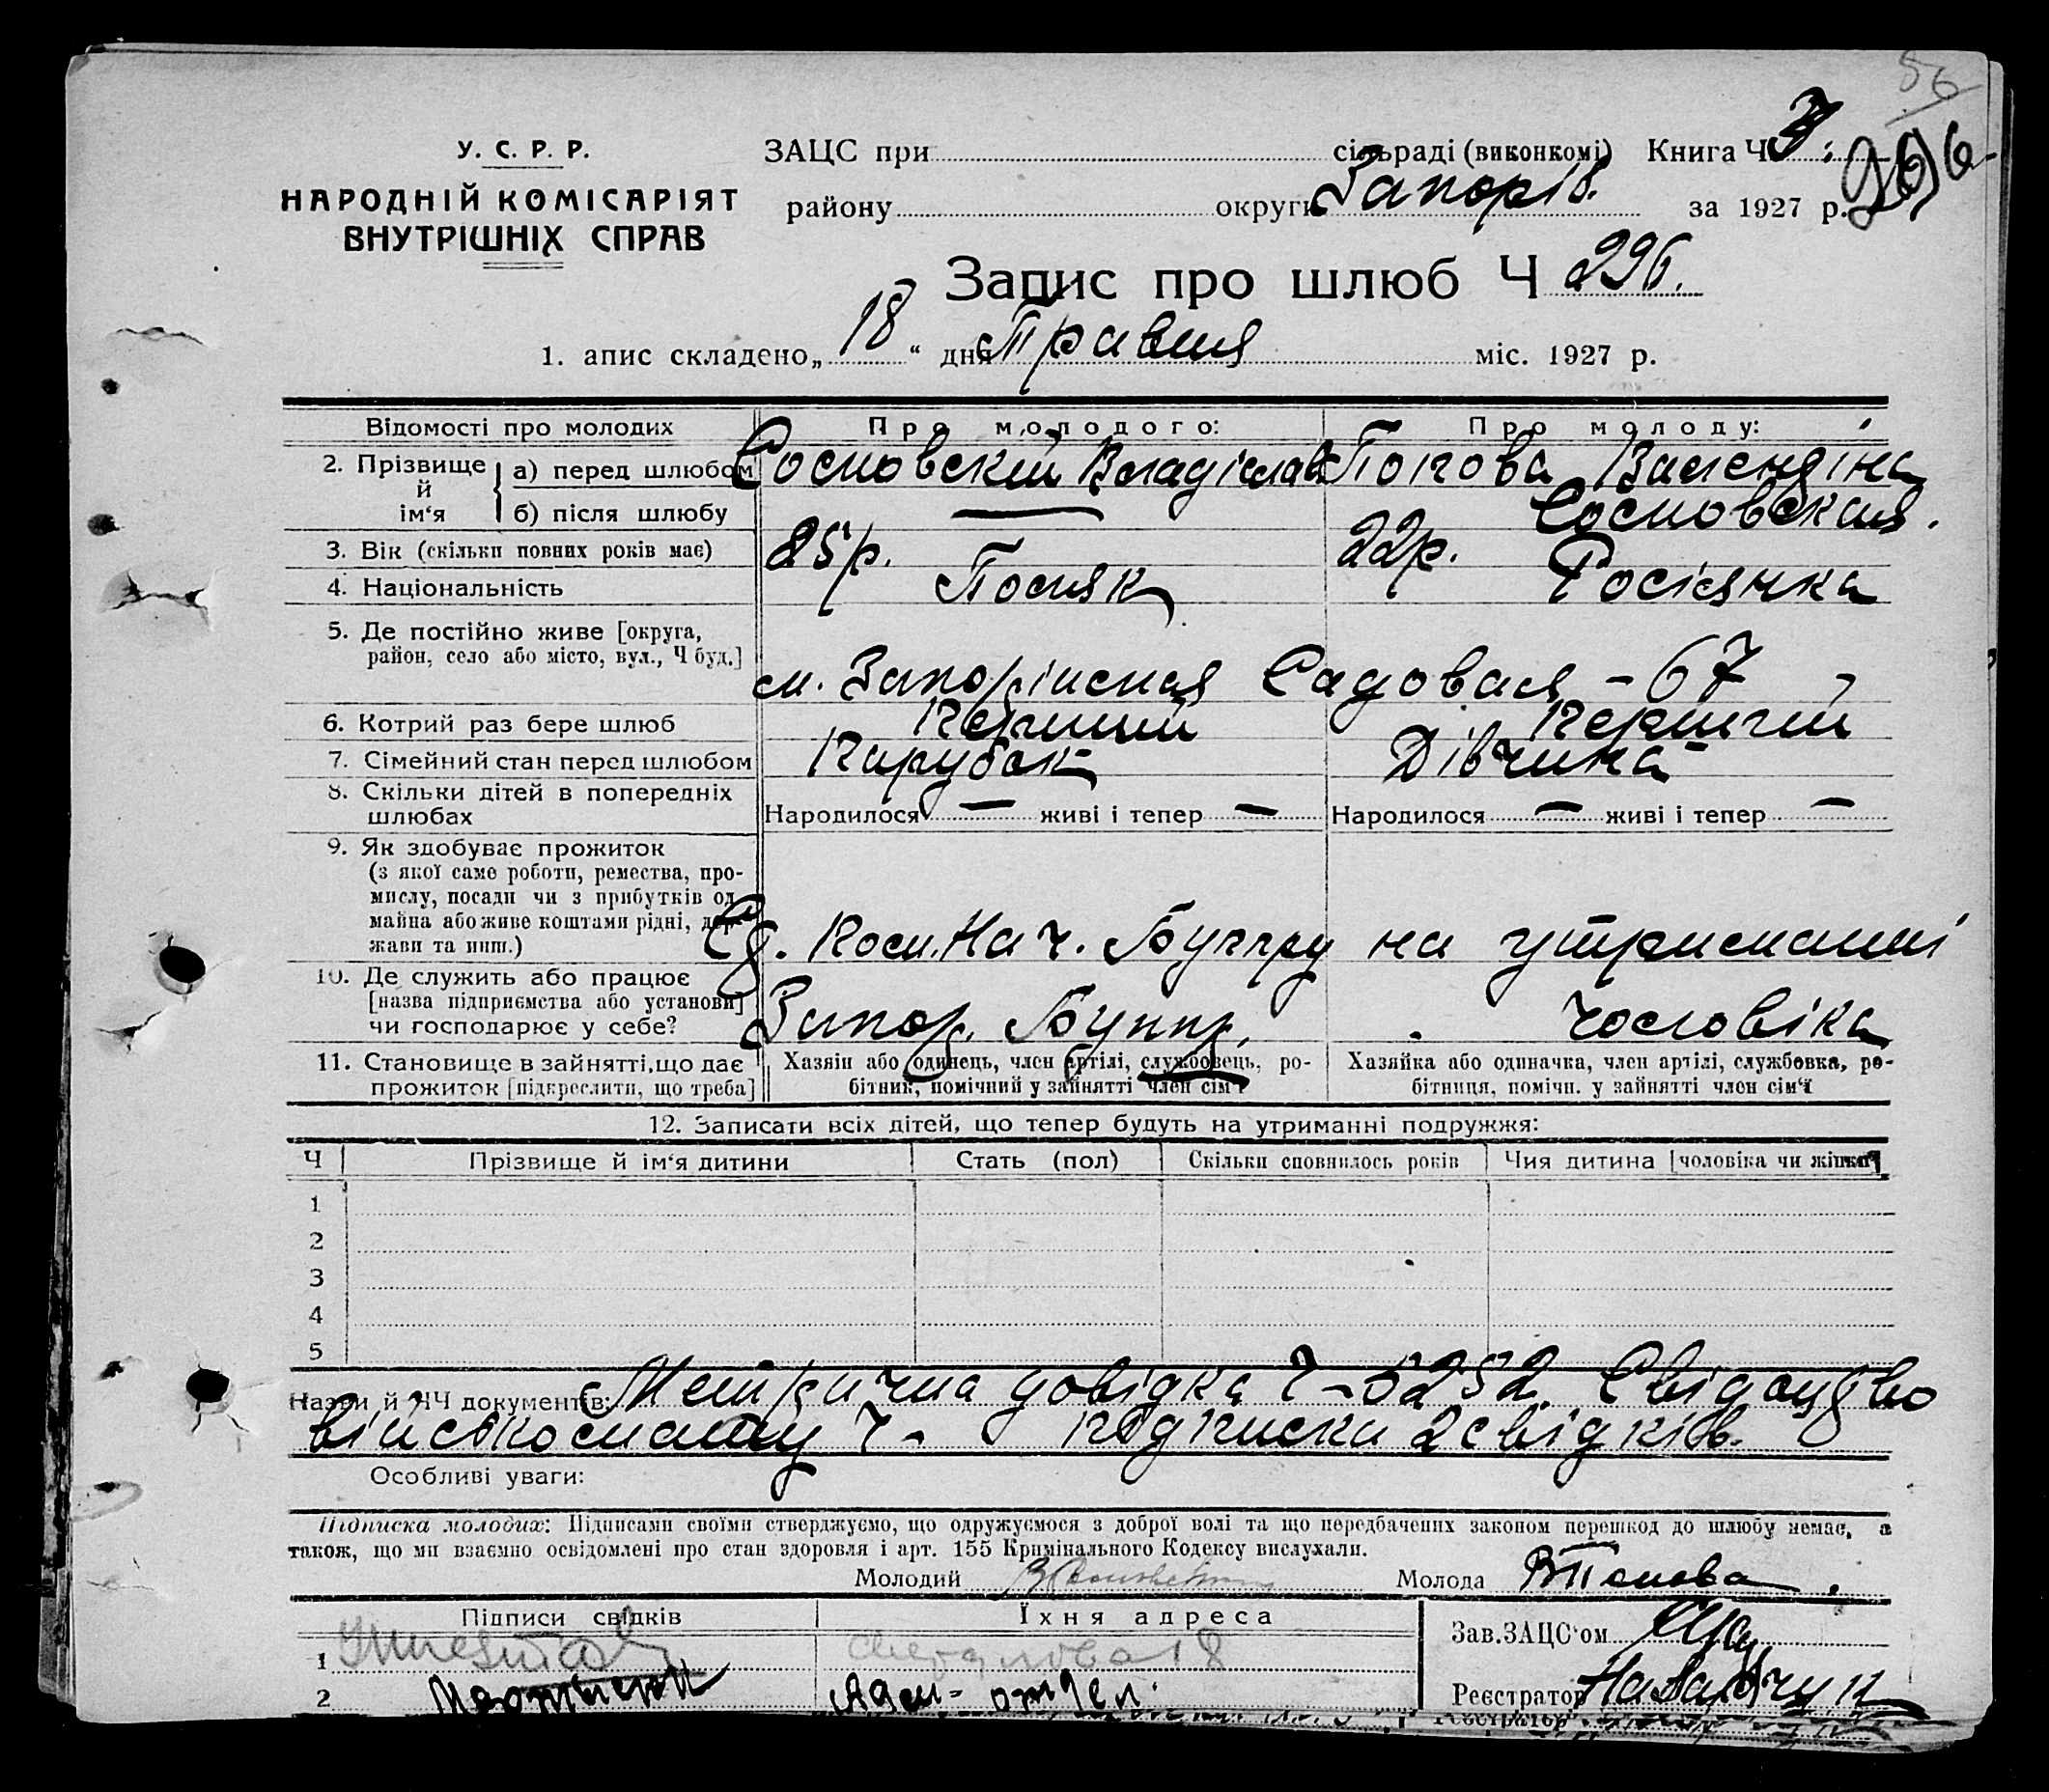 56
У. С. Р. Р.
НАРОДНІЙ КОМІСАРІЯТ
ВНУТРІШНІХ СПРАВ
ЗАЦС при сільраді (виконкомі) Книга Ч 3.
296
району округи Запоріз. за 1927 р.
Запис про шлюб Ч 296.
1. апис складено „18“ дня Травня міс. 1927 р.
Відомості про молодих Про молодого: Про молоду:
2. Прізвище й ім‘я а) перед шлюбом Сосновскій Владіслав Попова Валендіна
б) після шлюбу — Сосновская.
3. Вік (скільки повних років має) 25 р. 22 р.
4. Національність Поляк Росіянка
5. Де постійно живе [округа,
район, село або місто, вул., Ч буд.]
м. Запоріжжя Садовая – 67
6. Котрий раз бере шлюб Перший Перший
7. Сімейний стан перед шлюбом Парубок Дівчина
8. Скільки дітей в попередніх
шлюбах Народилося — живі і тепер — Народилося — живі і тепер —
9. Як здобуває прожиток
(з якої саме роботи, ремества, про-
мислу, посади чи з прибутків од
майна або живе коштами рідні, дер-
жави та инш.) Нач. Буппру на утриманні
10. Де служить або працює
[назва підприємства або установи]
чи господарює у себе? Запор. Буппр. чоловіка
11. Становище в зайнятті, що дає
прожиток [підкреслити, що треба]
Хазяін або одинець, член артілі, службовець, ро-
бітник, помічний у зайнятті член сім‘ї
Хазяйка або одиначка, член артілі, службовка, ро-
бітниця, помічн. у зайнятті член сім‘ї
12. Записати всіх дітей, що тепер будуть на утриманні подружжя:
Ч Прізвище й ім‘я дитини Стать (пол) Скільки сповнилось років Чия дитина [чоловіка чи жінки]
1
2
3
4
5
Назви й ЧЧ документів: Метрична довідка Ч – 5252. Свідоцтво
військомату Ч – підписка 2 свідків.
Особливі уваги:
Підписка молодих: Підписами своїми стверджуємо, що одружуємося з доброї волі та що передбачених законом перешкод до шлюбу немає, а
також, що ми взаємно освідомлені про стан здоровля і арт. 155 Кримінального Кодексу вислухали.
Молодий Молода ВПопова.
Підписи свідків Їхня адреса Зав. ЗАЦС‘ом
1 18
2 Адм – отдел. Реєстратор